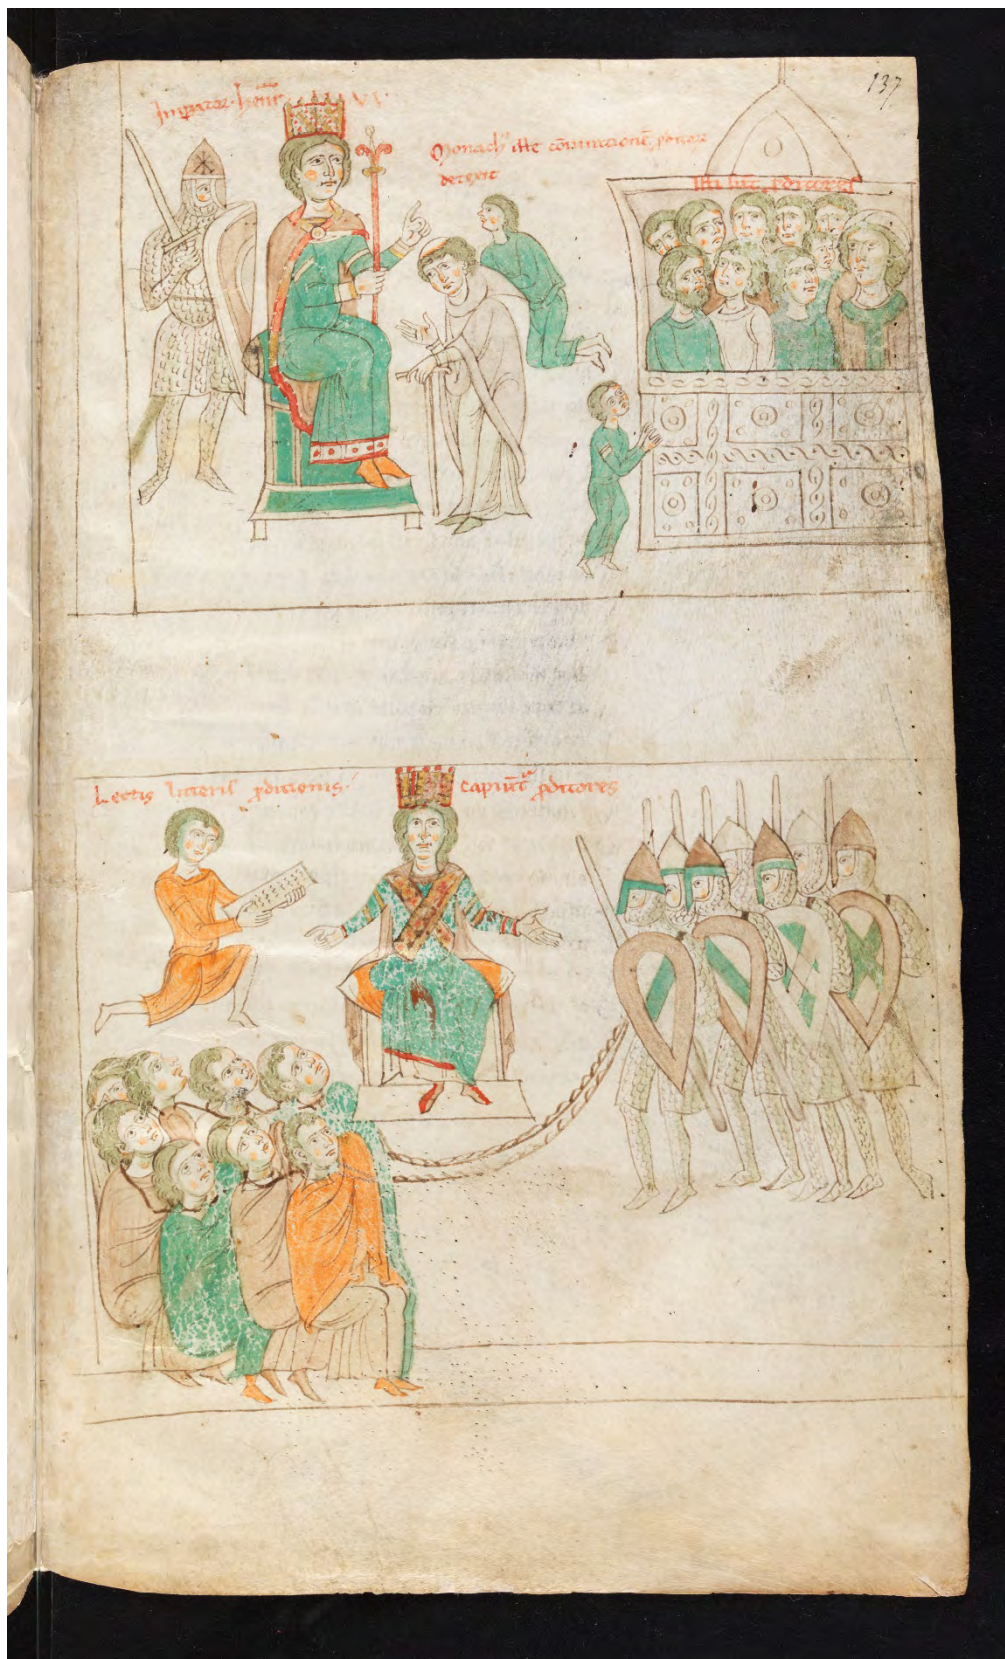 137
Imperator · henric̄ VI ·
Monach᷒ iste c̄iurationē p̱ditor̄
detexit
Isti sūt p̱ditores
Lectis litteris p̱ditionis ·
capiūt᷑ p̱ditores